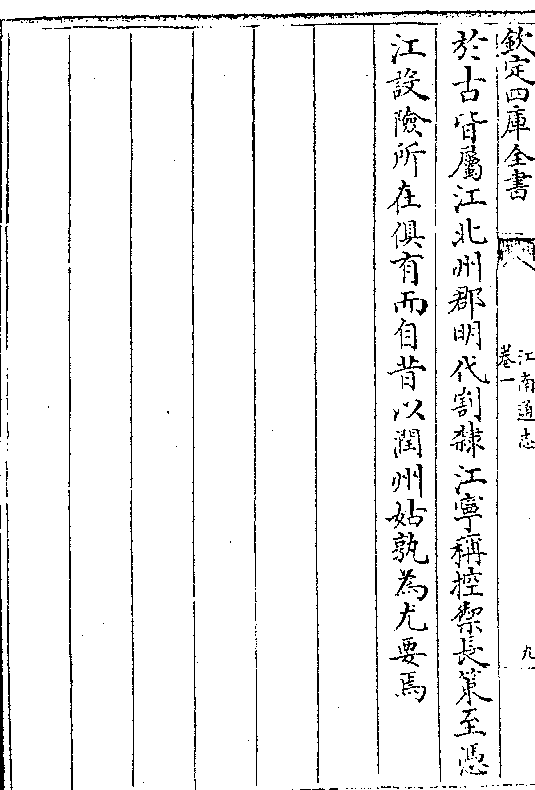 欽定四庫全書
江南通志
卷一
九
於古皆屬江北州郡明代割隸江寧稱控禦長策至憑
江設險所在俱有而自昔以潤州姑孰為尤要焉